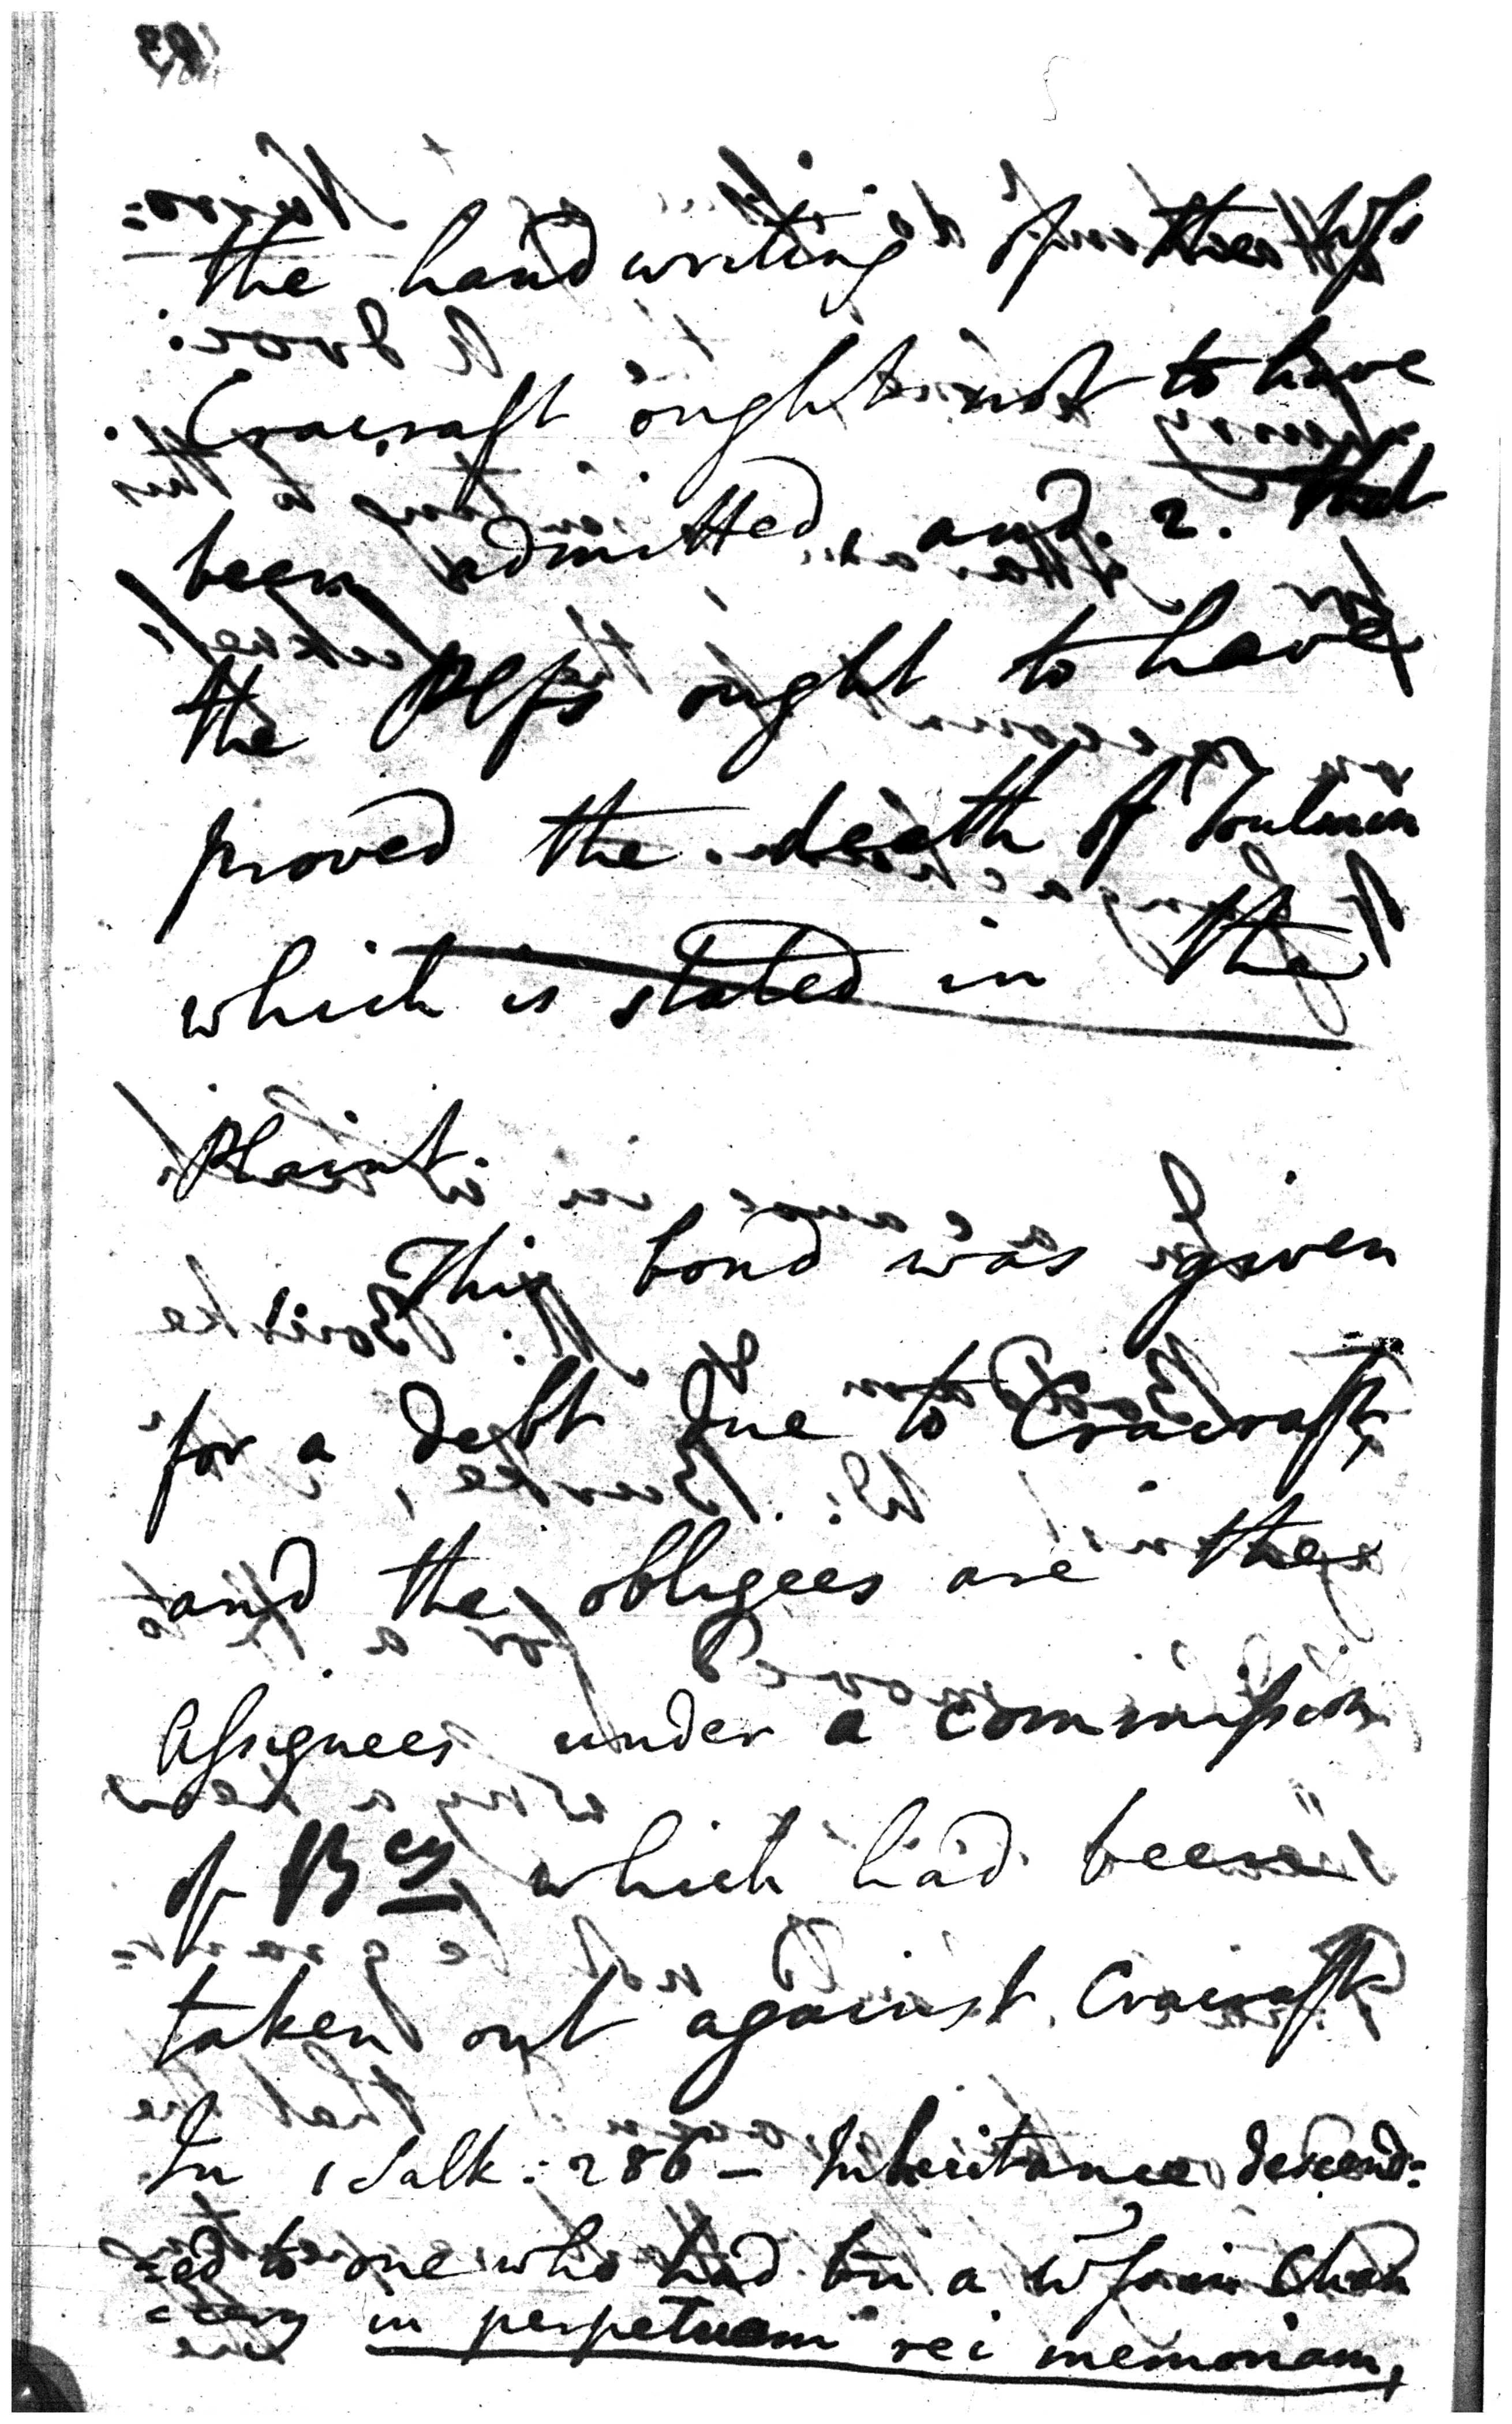 the handwriting of the Wss
Cracraft ought not to have
been admitted, and. 2. that
the Plfs ought to have
proved the death of Toulmin
which is stated in the
Plaint.
This bond was given
for a debt due to Cracraft,
and the obligees are the
Assignees under a commission
of Bcy which had been
taken out against Cracraft
In 1 Salk: 286 – Inheritance descend:
=ed to one who had bn a Wss in Chan
=cery in perpetuam rei memoriam,